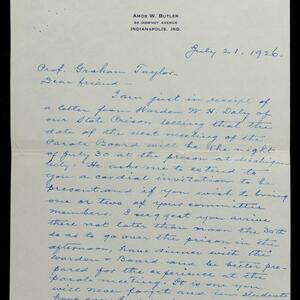 AMOS W. BUTLER
52 DOWNEY AVENUE
INDIANAPOLIS, IND.
July 21, 1926.
Prof. Graham Taylor.
Dear friend -
I am just in receipt of
a letter from Warden W. H. Daly of
our State Prison telling that the
date of the next meeting of the
Parole Board will be the night
of July 30 at the prison at Michigan
City. He asks me to extend to
you a cordial invitation to be
present, and if you wish to bring
one or two of your committee
members. I suggest you arrive
there not later than noon the 30th
so as to go over the prison in the
afternoon, have dinner with the
Warden & Board and be better pre-
pared for the experience at the
parole meeting. It is one you
will never forget and few students
have